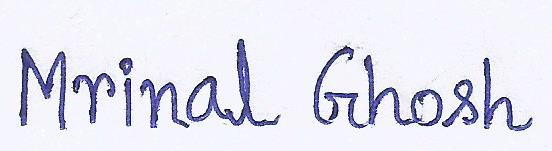 Mrinal Ghosh